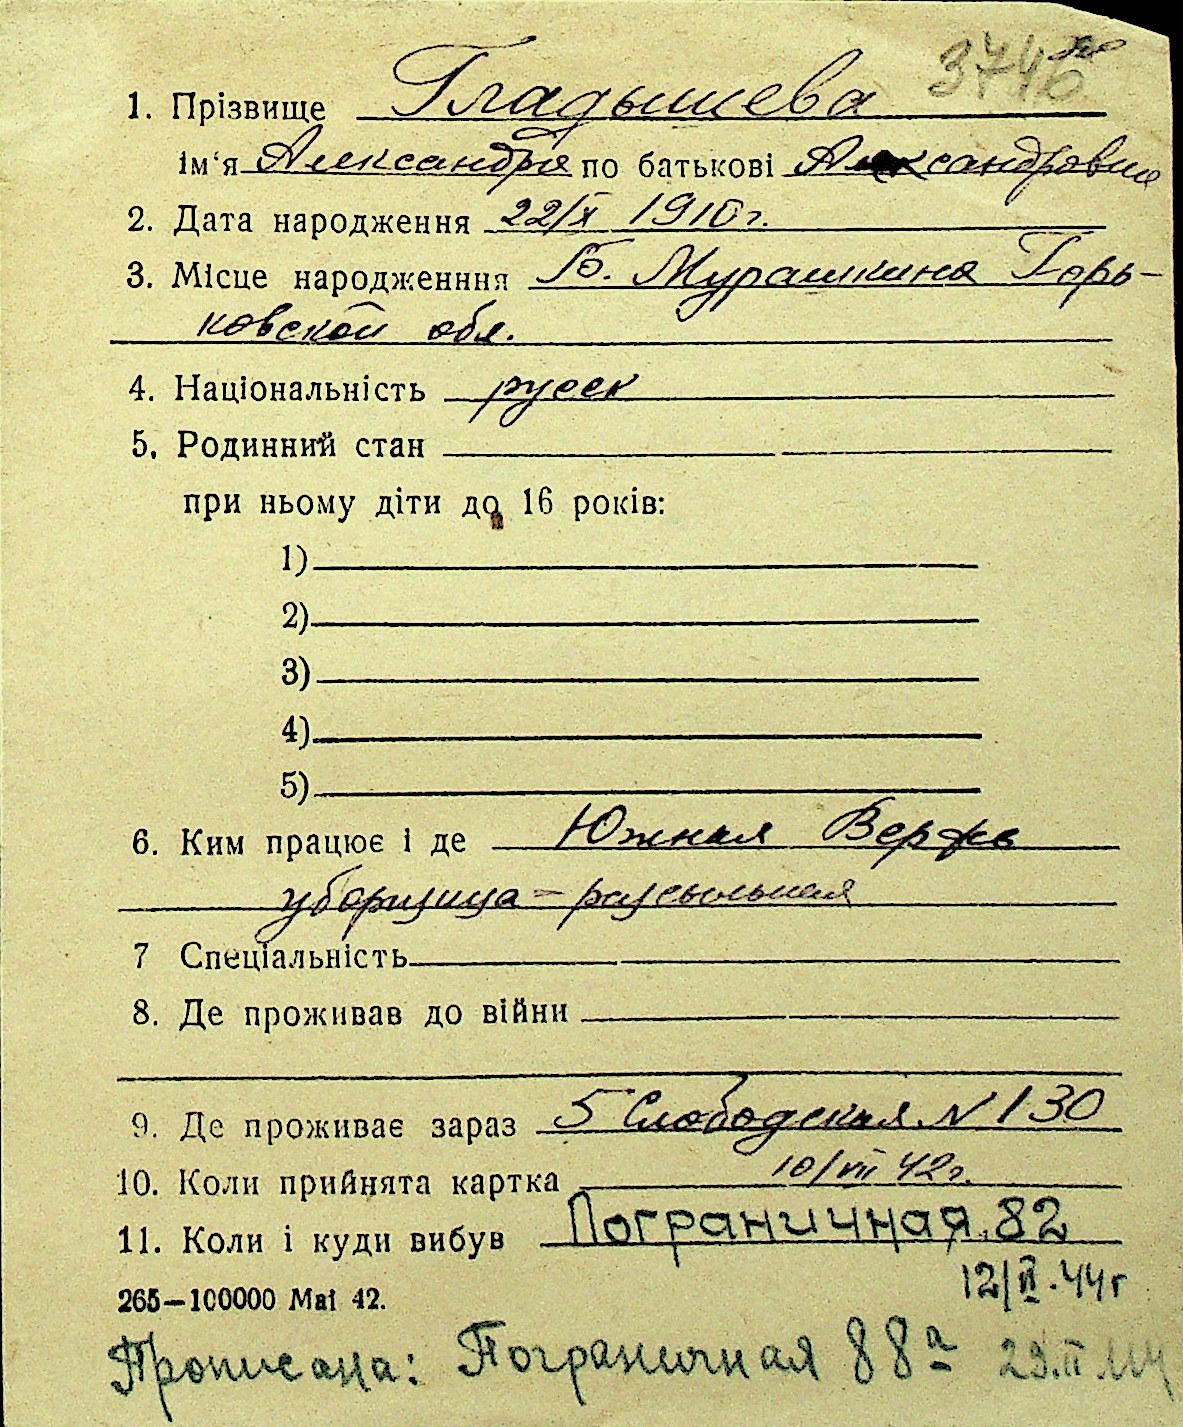 3746
1. Прізвище Гладышева
ім‘я Александра по батькові Александровна
2. Дата народження 22/X 1910 г.
3. Місце народженння Б. Мурашкина Горь-
ковской обл.
4. Національність русск
5. Родинний стан
при ньому діти до 16 років:
1)
2)
3)
4)
5)
6. Ким працює і де Южная Верфь
уборщица - рассыльная
7 Спеціальність
8. Де проживав до війни
9. Де проживає зараз 5 Слободская N 130
10. Коли прийнята картка 10/VII 42 г.
11. Коли і куди вибув Пограничная, 82
12/II. 44 г
265—100000 Mai 42.
Прописана: Пограничная 88 а 29.II 44